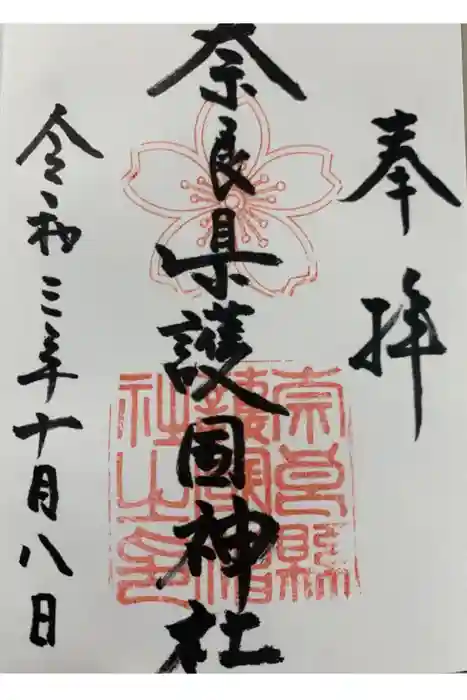 奉拝
奈良県護国神社
令和三年十月八日
奈良縣護國神社之印